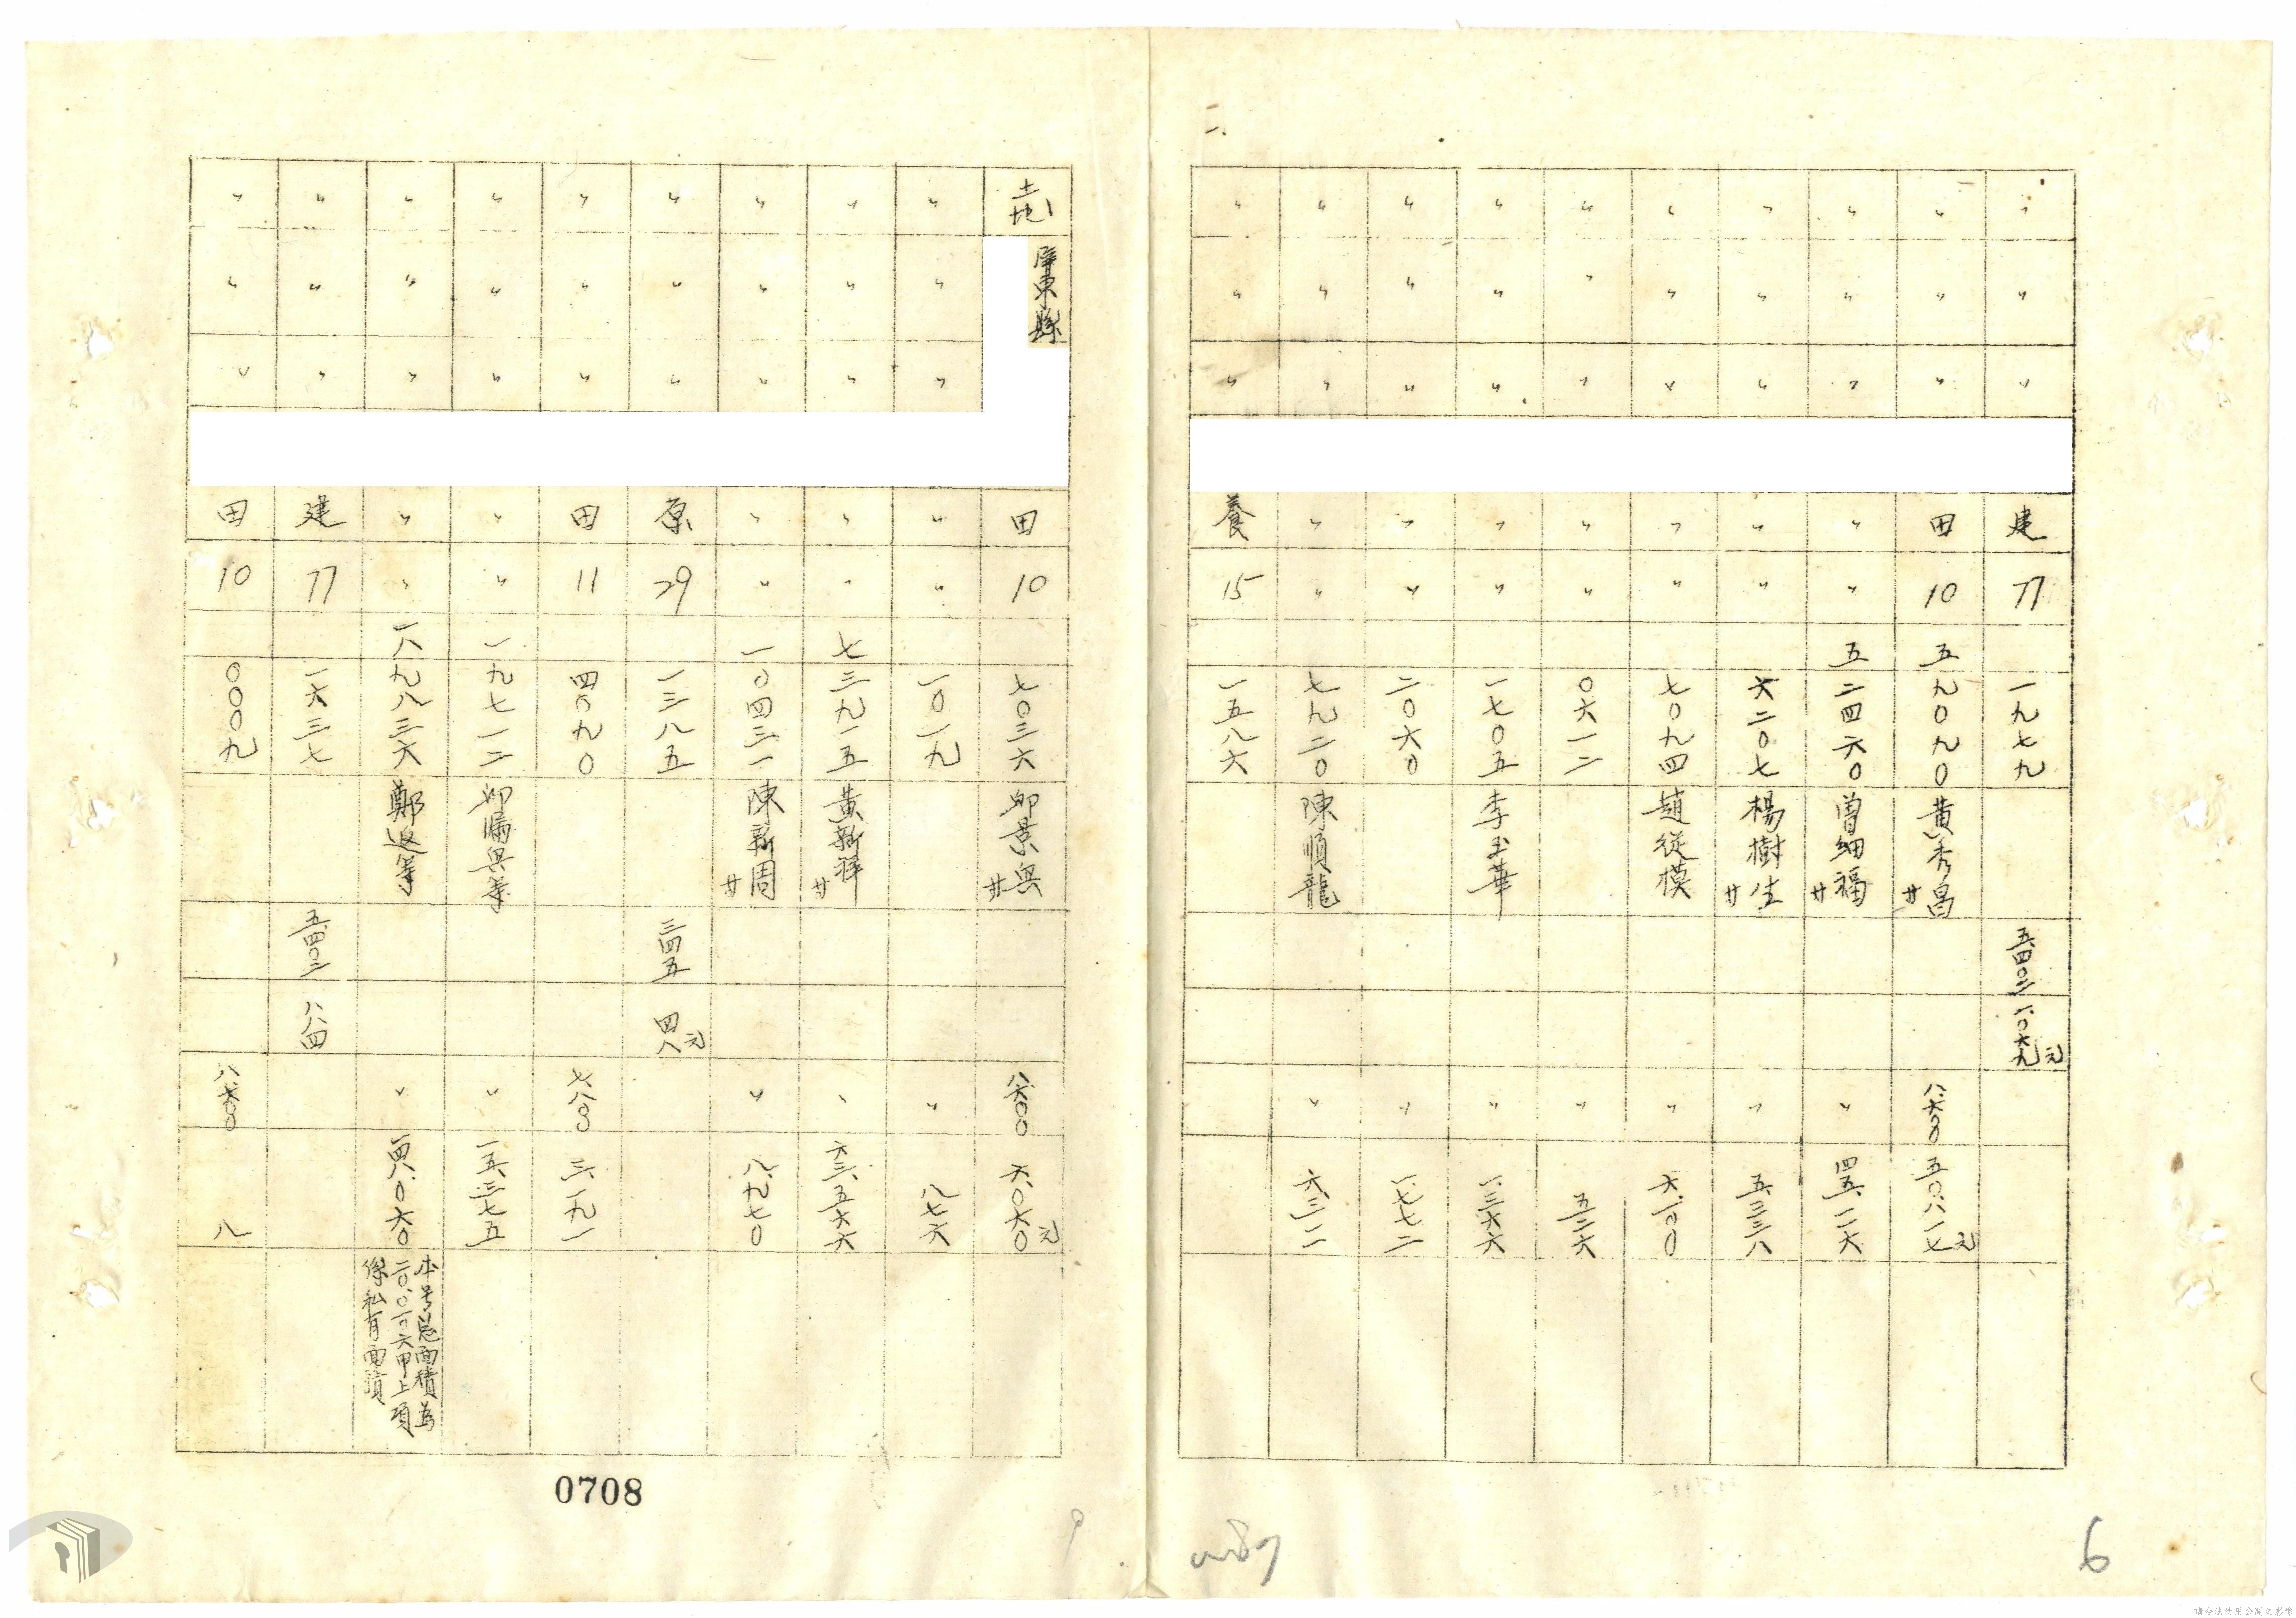 二
〃 〃 〃 建 77 一九七九 五四〇二 一〇六九元
〃 〃 〃 田 10 五九〇九〇 黃秀昌 廿 八六〇〇 五〇八一七元
〃 〃 〃 〃 〃 五二四六〇 曾細福 廿 〃 四五一一六
〃 〃 〃 〃 〃 六二〇七 楊樹生 廿 〃 五三三八
〃 〃 〃 〃 〃 七〇九四 趙従模 〃 六一〇〇
〃 〃 〃 〃 〃 〇六一二 〃 五二六
〃 〃 〃 〃 〃 一七〇五 李玉華 〃
〃 〃 〃 〃 〃 二〇六〇 〃 一七七二
〃 〃 〃 〃 〃 七九二〇 陳順龍 〃
〃 〃 〃 養 15 一五八六
6
土地 屏東縣 田 10 七〇三六 景興 廿 八六〇〇 六〇六〇元
〃 〃 〃 〃 〃 一〇一九 〃 八七六
〃 〃 〃 〃 〃 七三九一五 黃新祥 廿 〃 六三五六六
〃 〃 〃 〃 〃 一〇四三一 陳新周 廿 〃 八九七〇
〃 〃 〃 原 29 一三八五 三四五 四八元
〃 〃 〃 田 11 四〇九〇 七八〇〇 三一九一
〃 〃 〃 〃 〃 一九七一二 〃 一五三七五
〃 〃 〃 〃 〃 一八九八三六 鄭返等 〃 一四八〇六〇
本号总面積為
二〇〇一〇六甲上項
係私有面積
〃 〃 〃 建 77 一六三七 五四〇二 八八四
〃 〃 〃 田 10 〇〇〇九 八六〇〇 八
0708
請合法使用公開之影像